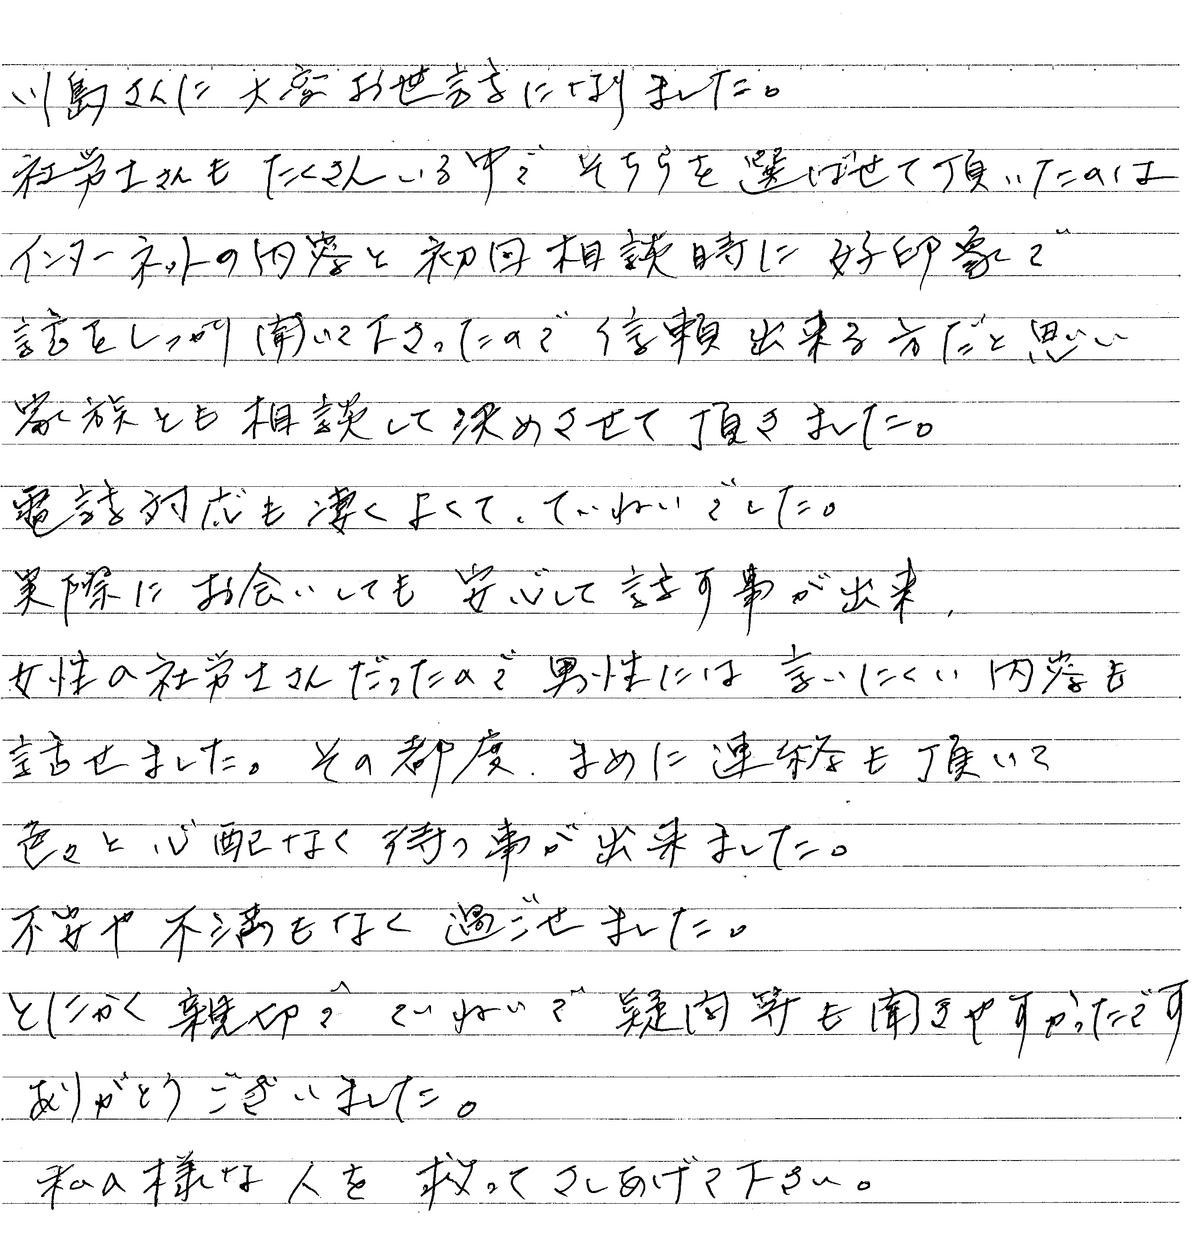 川島さんに大変お世話になりました。
社労士さんもたくさんいる中でそちらを選ばせて頂いたのは
インターネットの内容と初回相談時に好印象で
話をしっかり聞いて下さったので信頼出来る方だと思い
家族とも相談して決めさせて頂きました。
電話対応も凄くよくて、ていねいでした。
実際にお会いしても安心して話す事が出来、
女性の社労士さんだったので男性には言いにくい内容も
話せました。その都度、まめに連絡も頂いて
色々と心配なく待つ事が出来ました。
不安や不満もなく過ごせました。
とにかく親切で ていねいで疑問等も聞きやすかったです
ありがとうございました。
私の様な人を救ってさしあげて下さい。